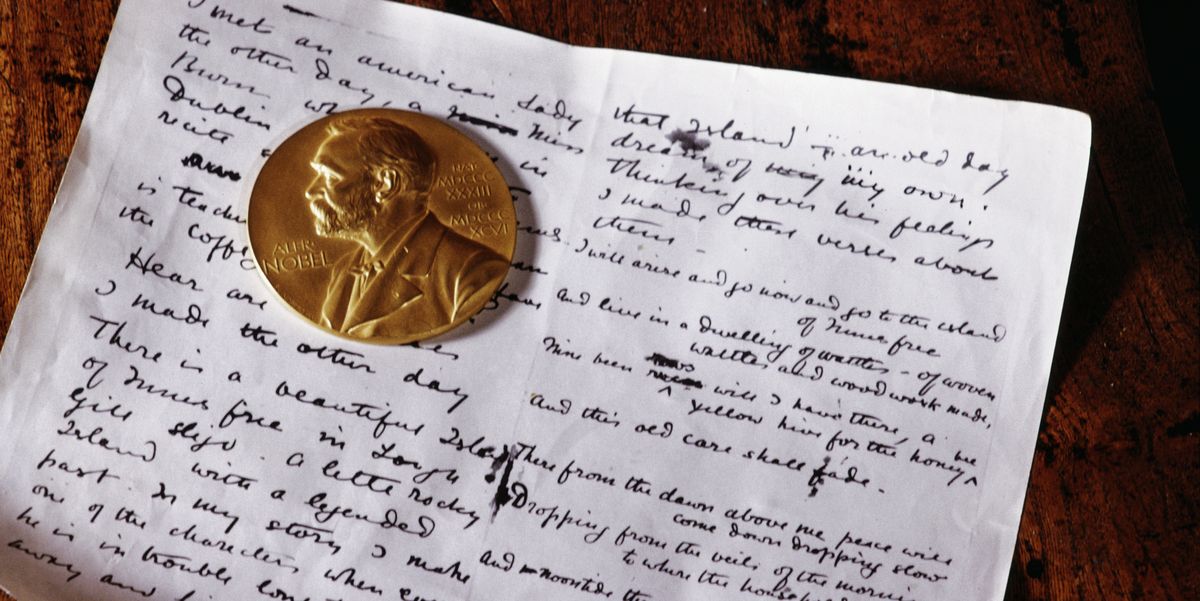 I met an american Lady
the other day, a Miss
Burn
Dublin in
recite
is
the
Hear are
I made the other day
There is a beautiful
of Innis free in Lough
Gill sligo. A little rocky
Island with a legended
past. In my story I make
one of the characters when
he is in trouble
away and
ALFR·
NOBEL
NAT·
MDCCC
XXXIII
OB·
MDCCC
XCVI
that Island – an old day
dream of my own.
Thinking over his feelings
I made these verses about
them –
I will arise and go now and go to the island
of Innis free
And live in a dwelling of wattles – of woven
wattles and wood work made,
Nine bean rows will I have there, a
yellow hive for the honey bee
And this old care shall fade.
There from the dawn above me peace will
come down dropping slow
Dropping from the veils of the
to where the
and noontide